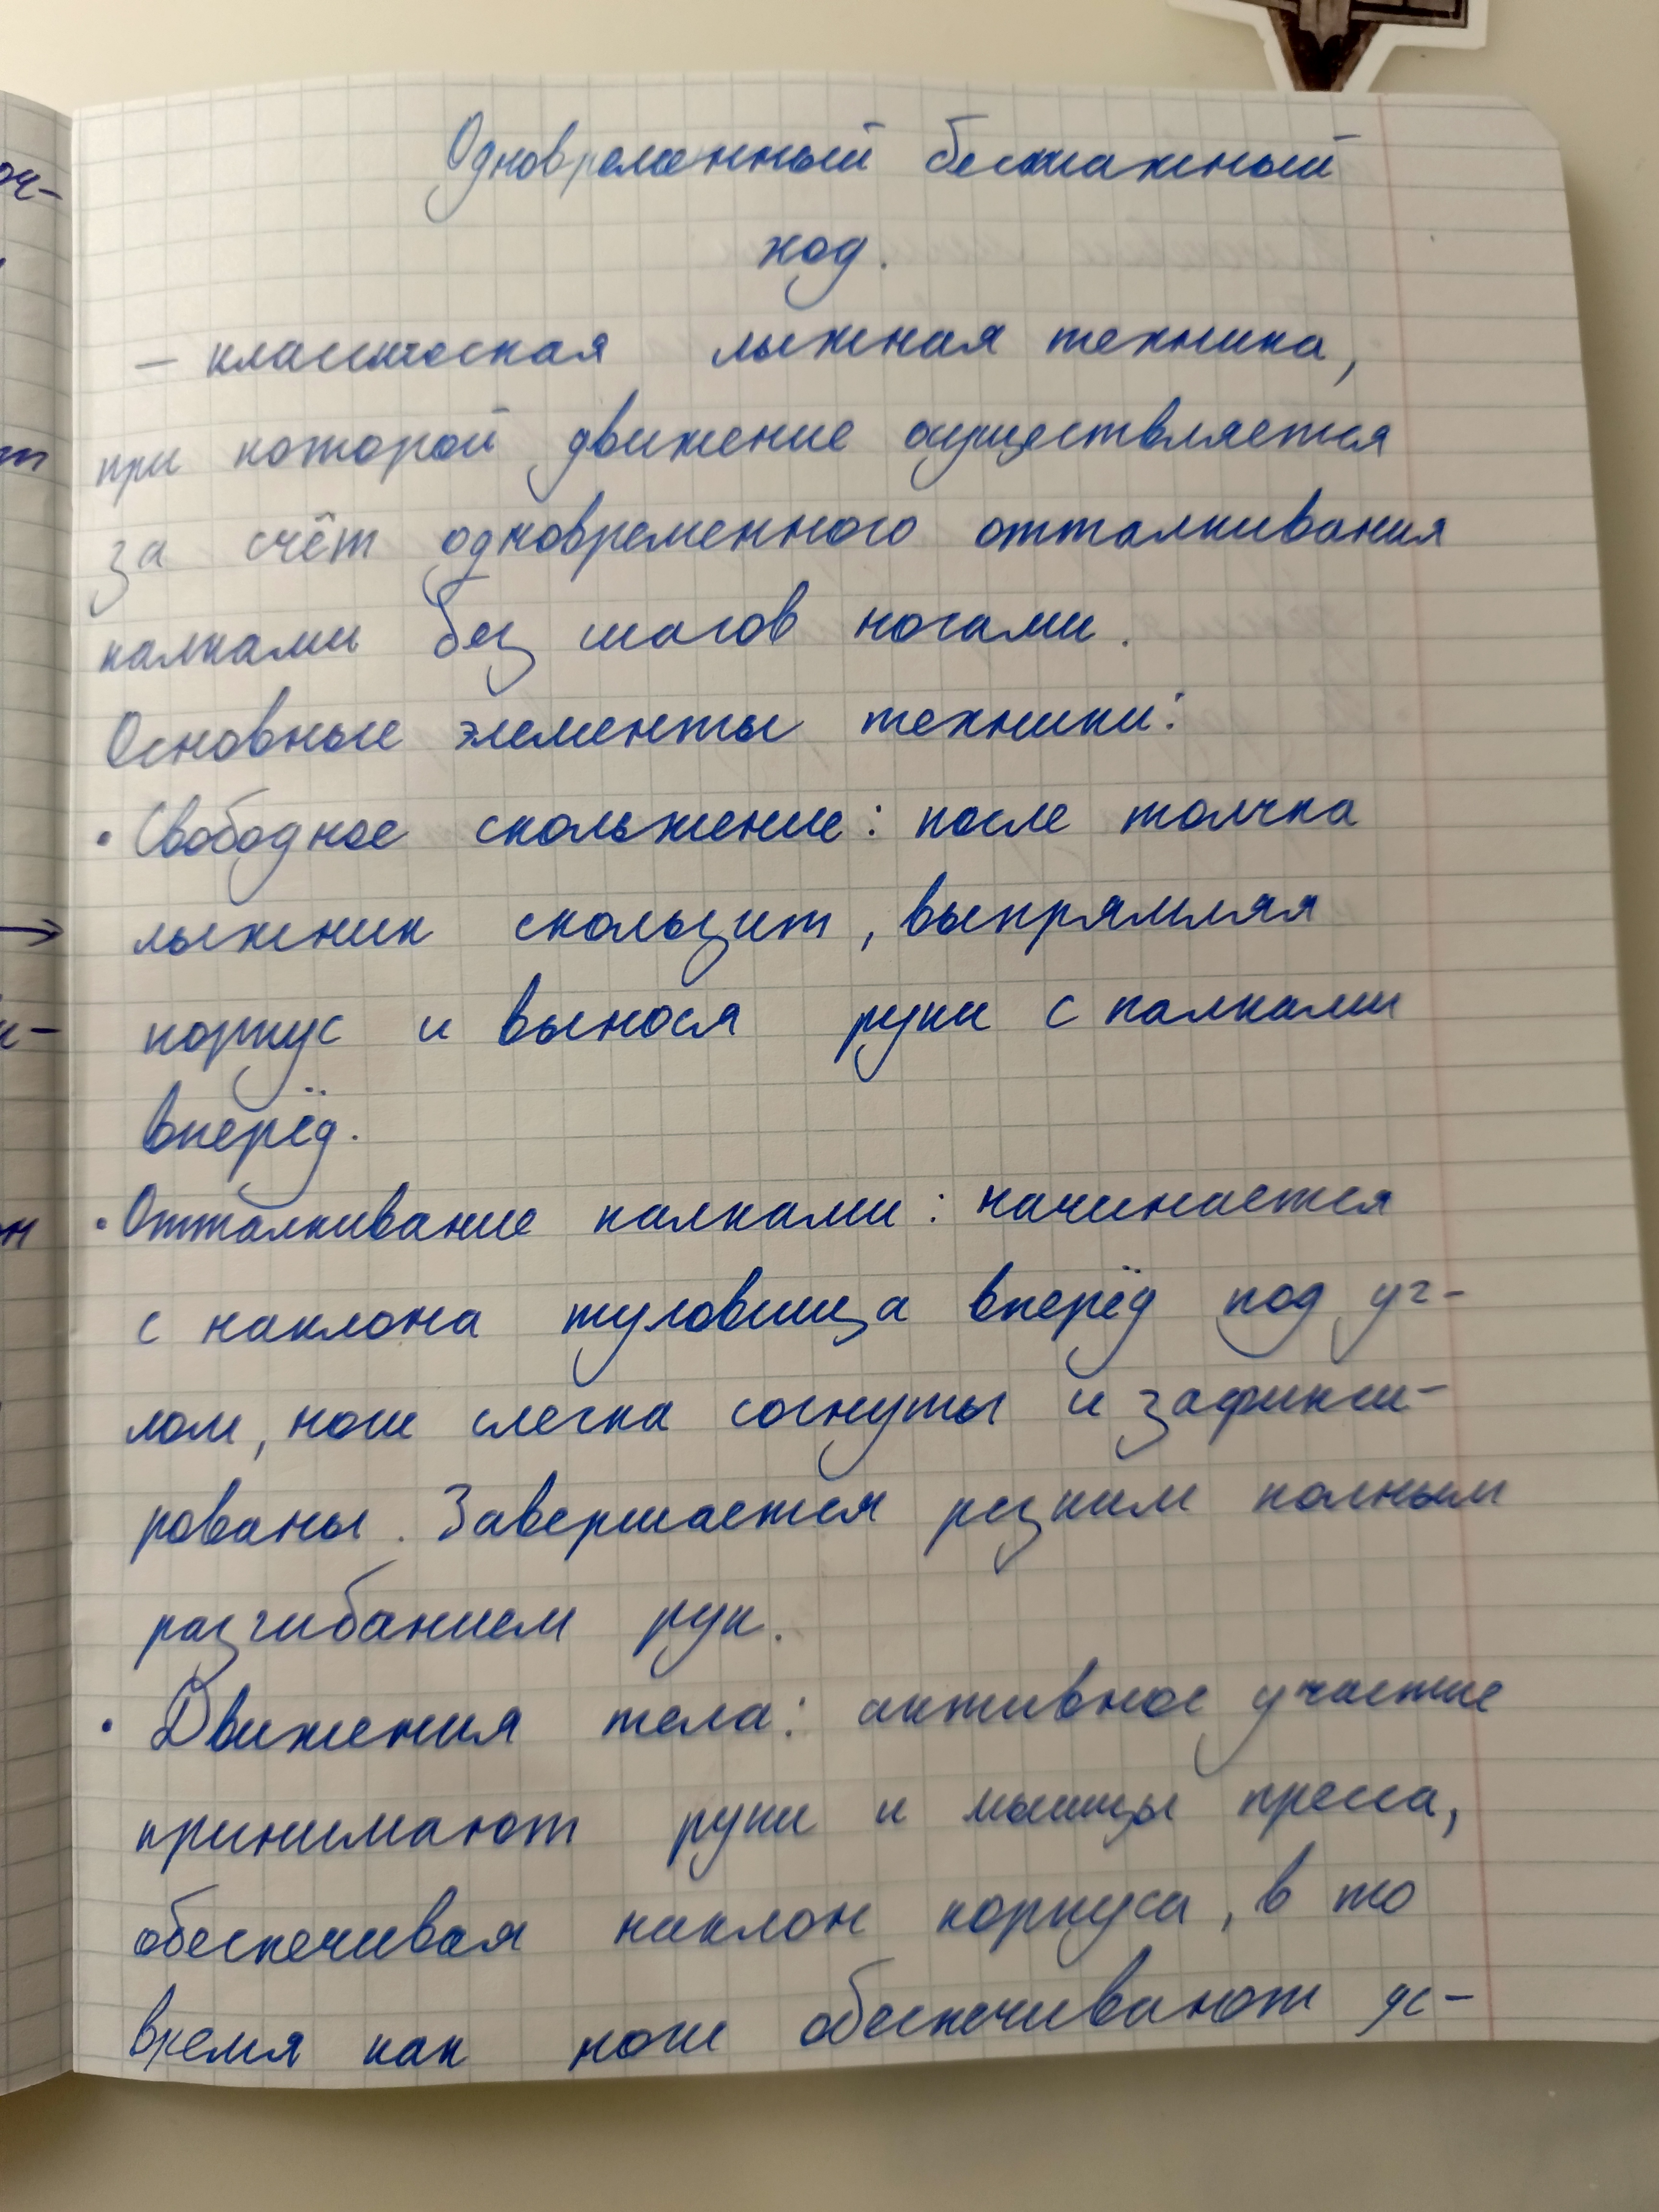 Одновременный бесшажный
ход.
– классическая лыжная техника,
при которой движение осуществляется
за счёт одновременного отталкивания
палками без шагов ногами.
Основные элементы техники:
• Свободное скольжение: после толчка
лыжник скользит, выпрямляя
корпус и вынося руки с палками
вперёд.
• Отталкивание палками: начинается
с наклона туловища вперёд под уг-
лом, ноги слегка согнуты и зафикси-
рованы. Завершается резким полным
разгибанием рук.
• Движения тела: активное участие
принимают руки и мышцы пресса,
обеспечивая наклон корпуса, в то
время как ноги обеспечивают ус-